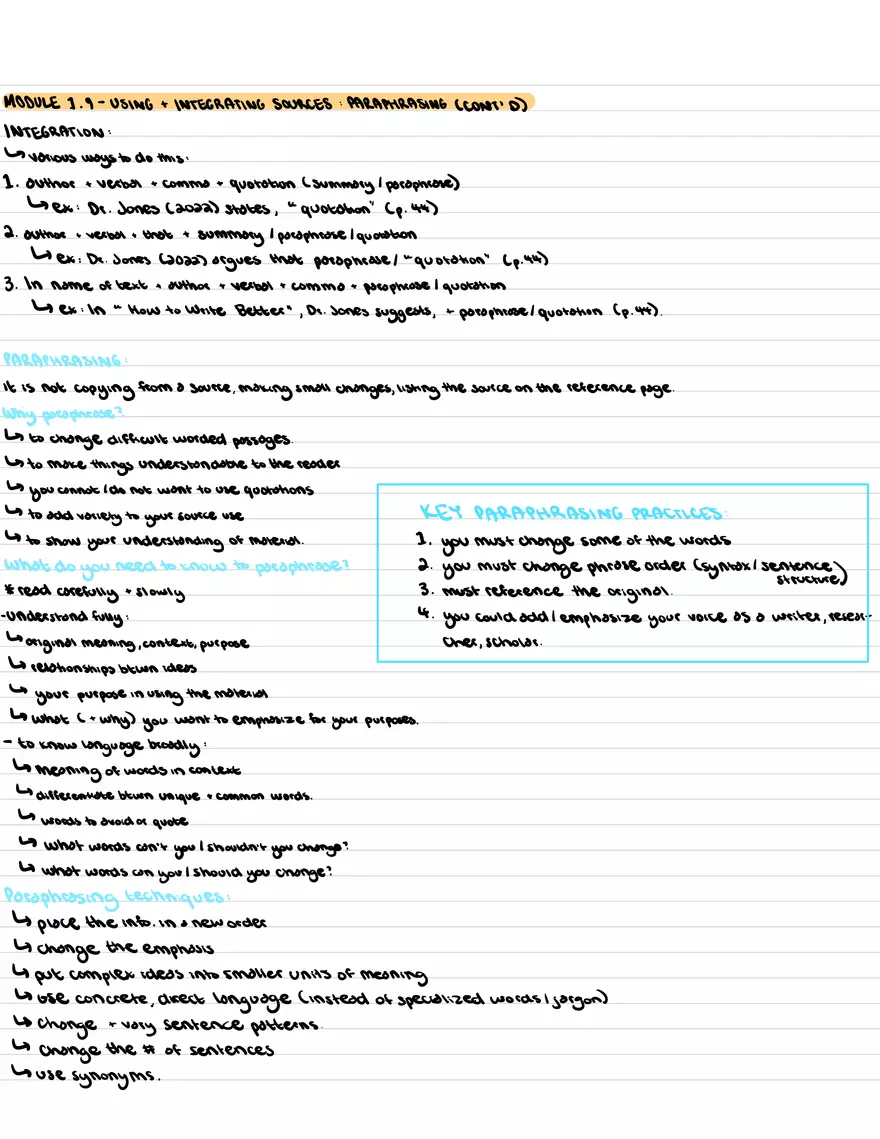 MODULE 1.9 - USING + INTEGRATING SOURCES : PARAPHRASING (CONT'D)
INTEGRATION:
↳ various ways to do this:
1. author + verbal + comma + quotation (summary/paraphrase)
↳ ex: Dr. Jones (2022) states, "quotation" (p. 44)
2. author + verbal + that + summary/paraphrase/quotation
↳ ex: Dr. Jones (2022) argues that paraphrase/"quotation" (p.44)
3. In name of text + author + verbal + comma + paraphrase/quotation
↳ ex: In "How to Write Better", Dr. Jones suggests, + paraphrase/quotation (p.44).
PARAPHRASING:
it is not copying from a source, making small changes, listing the source on the reference page.
Why paraphrase?
↳ to change difficult worded passages.
↳ to make things understandable to the reader
↳ you cannot/do not want to use quotations
↳ to add variety to your source use
↳ to show your understanding of material.
What do you need to know to paraphrase?
* read carefully + slowly
- understand fully:
↳ original meaning, context, purpose
↳ relationships btwn ideas
↳ your purpose in using the material
↳ what (+ why) you want to emphasize for your purposes.
- to know language broadly:
↳ meaning of words in context
↳ differentiate btwn unique + common words.
↳ words to avoid or quote
↳ what words can't you/shouldn't you change?
↳ what words can you/should you change?
KEY PARAPHRASING PRACTICES:
1. you must change some of the words
2. you must change phrase order (syntax/sentence
structure)
3. must reference the original.
4. you could add/emphasize your voice as a writer, resear-
cher, scholar.
Paraphrasing techniques:
↳ place the info. in a new order
↳ change the emphasis
↳ put complex ideas into smaller units of meaning
↳ use concrete, direct language (instead of specialized words/jargon)
↳ change + vary sentence patterns.
↳ change the # of sentences
↳ use synonyms.